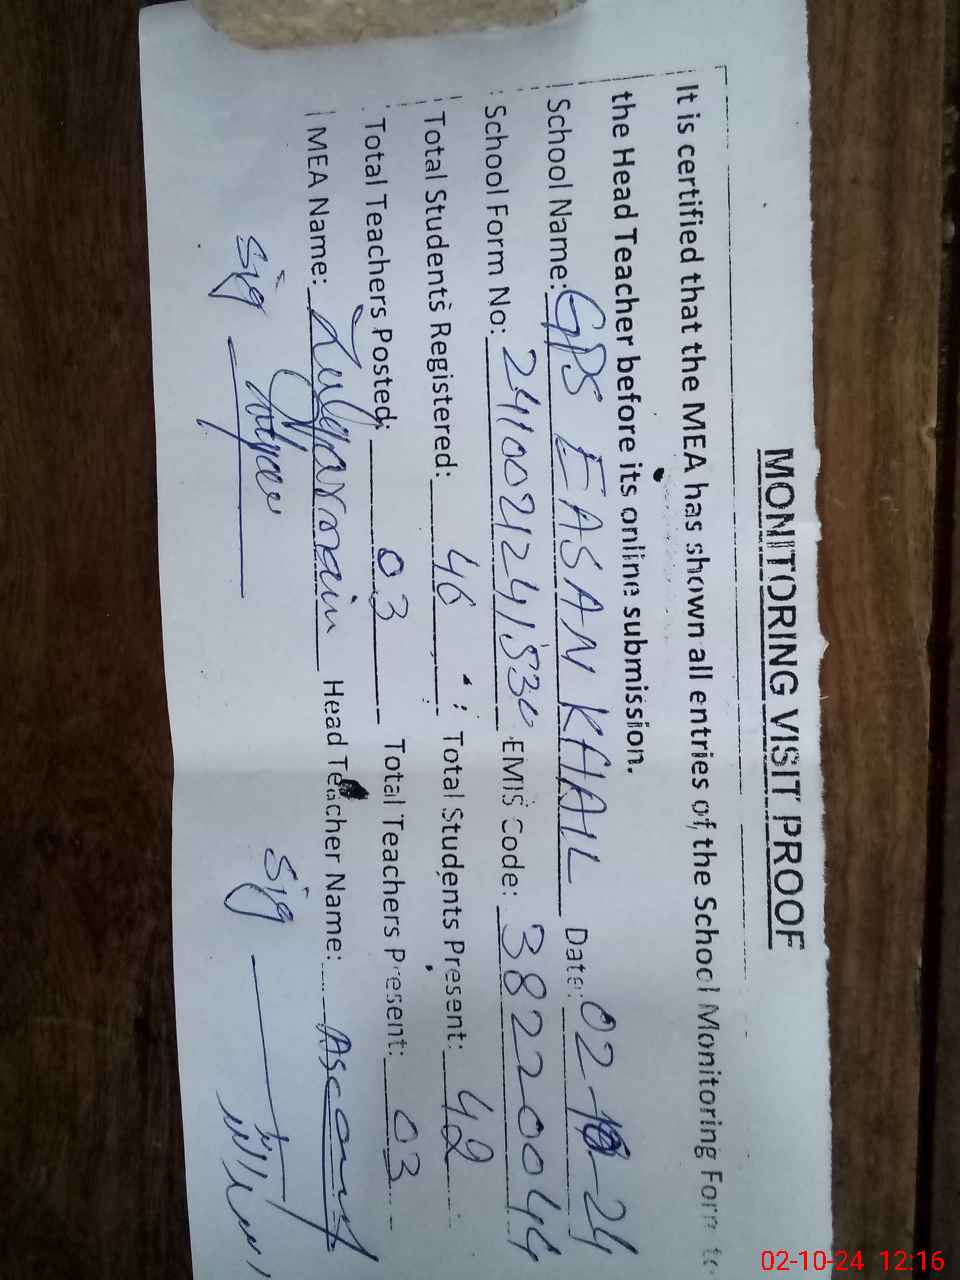 MONITORING VISIT PROOF
It is certified that the MEA has shown all entries of the School Monitoring Form to
the Head Teacher before its online submission.
School Name: GPS EASAN KHAIL Date: 02-10-24
School Form No: EMIS Code: 38220044
Total Students Registered: 46 Total Students Present: 42
Total Teachers Posted: 03 Total Teachers Present: 03
MEA Name: Zulqarnain Head Teacher Name:
Sig Sig
02-10-24 12:16